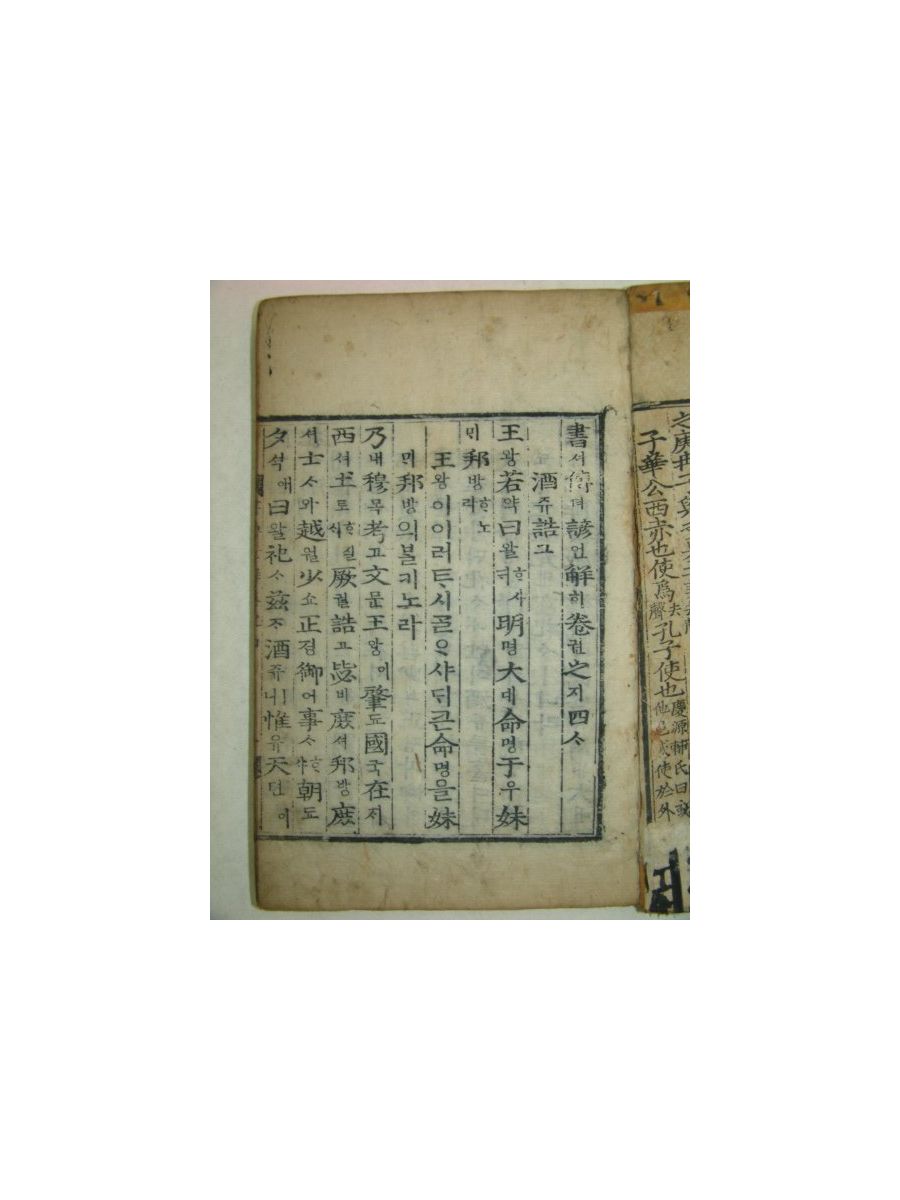 書셔傳뎐諺언解ᄒᆡ卷권之지四ᄉᆞ
酒쥬誥고
王왕若약曰왈ᄒᆞ샤ᄃᆡ明명大대命명于우妹
ᄆᆡ邦방ᄒᆞ노라
王왕이이러ᄐᆞ시ᄀᆞᆯᄋᆞ샤ᄃᆡ큰命명을妹
ᄆᆡ邦방의ᄇᆞᆯ기노라
乃내穆목考고文문王왕이肇됴國국在ᄌᆡ
西셔土토ᄒᆞ실ᄉᆡ厥궐誥고毖비庶셔邦방庶
셔士ᄉᆞ와越월少쇼正졍御어事ᄉᆞᄒᆞ샤朝됴
夕셕애曰왈祀ᄉᆞ玆ᄌᆞ酒쥬ㅣ니惟유天텬이
子華公西赤也使爲孔子使也